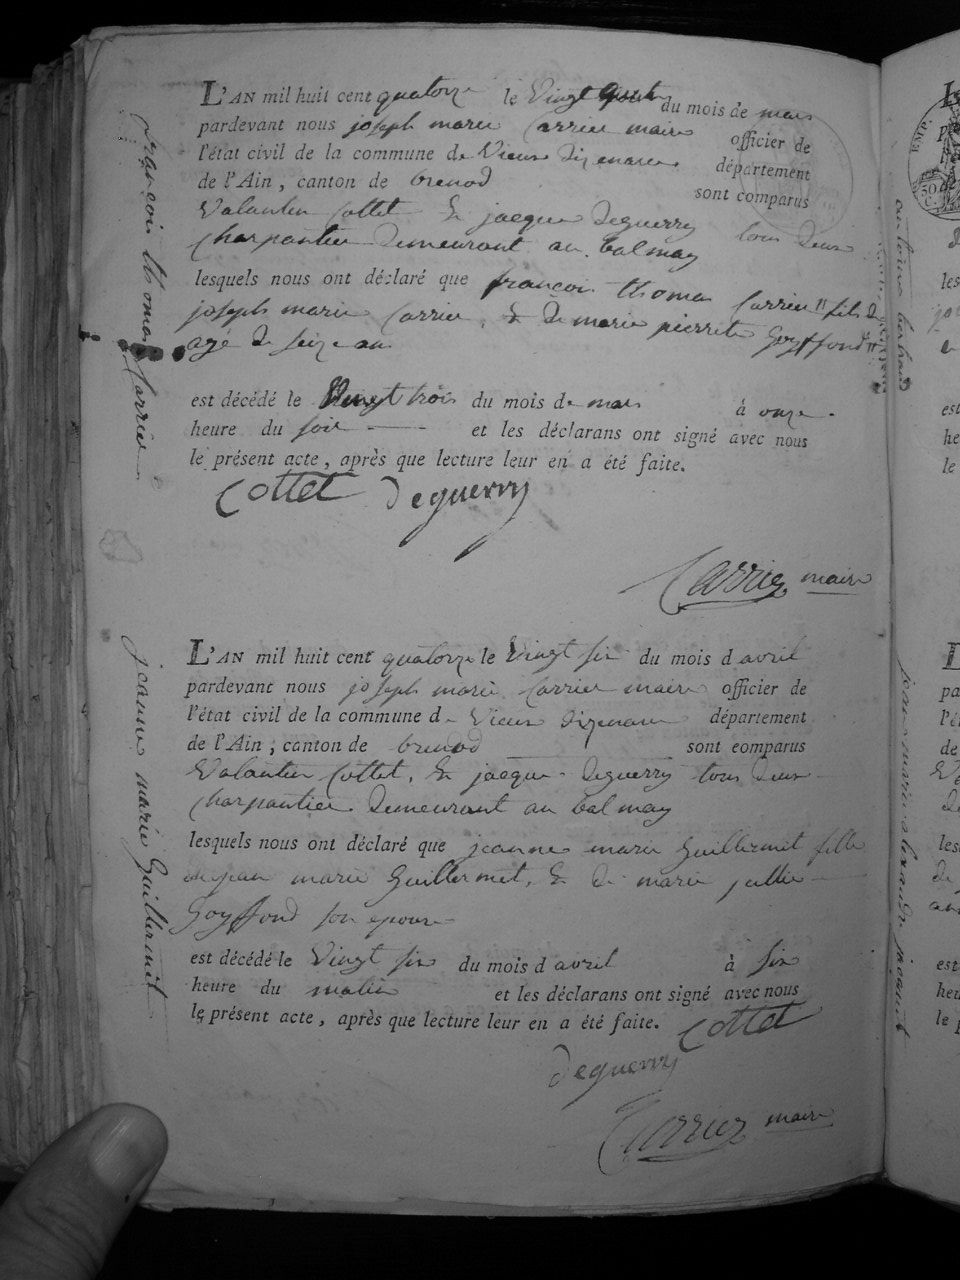 L'AN mil huit cent quatorze le Vingt quat du mois de mars
pardevant nous joseph marie Carrier maire officier de
l'état civil de la commune de Vieux Dizenave département
de l'Ain, canton de brenod sont comparus
Valantin Cottet & jacque Deguerry tous deux
Charpantier Demeurant au balmay
lesquels nous ont déclaré que françois thomas Carrier fils de
joseph marie Carrier, & de marie pierrette Goyffond
agé de seize an
est décédé le Vingt trois du mois de mars à onze
heure du soir et les déclarans ont signé avec nous
le présent acte, après que lecture leur en a été faite.
Cottet Deguerry
Carrier maire
françois thomas Carrier
L'AN mil huit cent quatorze le Vingt six du mois d avril
pardevant nous joseph marie Carrier maire officier de
l'état civil de la commune de Vieux Dizenave département
de l'Ain, canton de brenod sont comparus
Valantin Cottet, & jacque Deguerry tous deux
Charpantier Demeurant au balmay
lesquels nous ont déclaré que jeanne marie Guillermet fille
de jean marie Guillermet, & de marie jullie
Goyffond son epouse
est décédé le Vingt six du mois d avril à six
heure du matin et les déclarans ont signé avec nous
le présent acte, après que lecture leur en a été faite. Cottet
Deguerry
Carrier maire
jeanne marie Guillermet